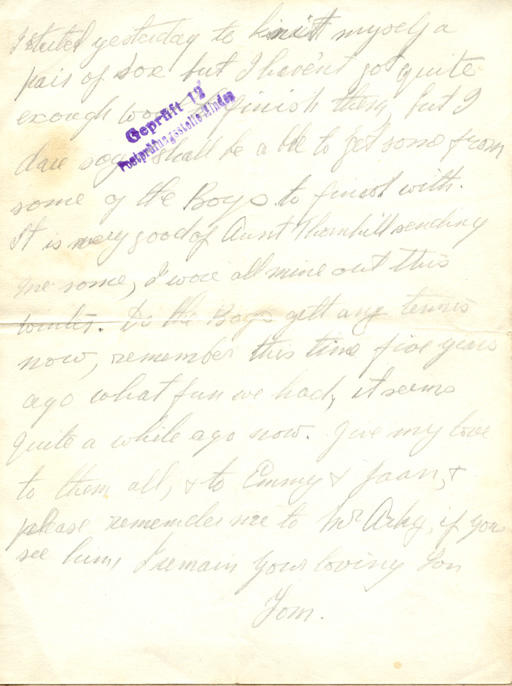 I started yesterday to knit myself a
pair of sox but I haven't got quite
exough wool to finish them but I
dare say I shall be able to get some from
some of the Boys to finish with.
It is very good of Aunt Thornhill sending
me some, I wore all mine out this
winter. Do the Boys gett any tennis
now, remember this time five years
ago what fun we had, it seems
quite a while ago now. Give my love
to them all, & to Emmy & Joan, &
please remember me to Mr , if you
see him, I remain Your loving Son
Tom.
Geprüft 12
Postprüfungsstelle